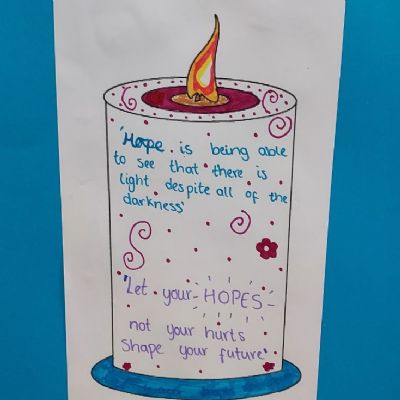 'Hope is being able
to see that there is
light despite all of the
darkness'
'Let your HOPES
not your hurts
shape your future'